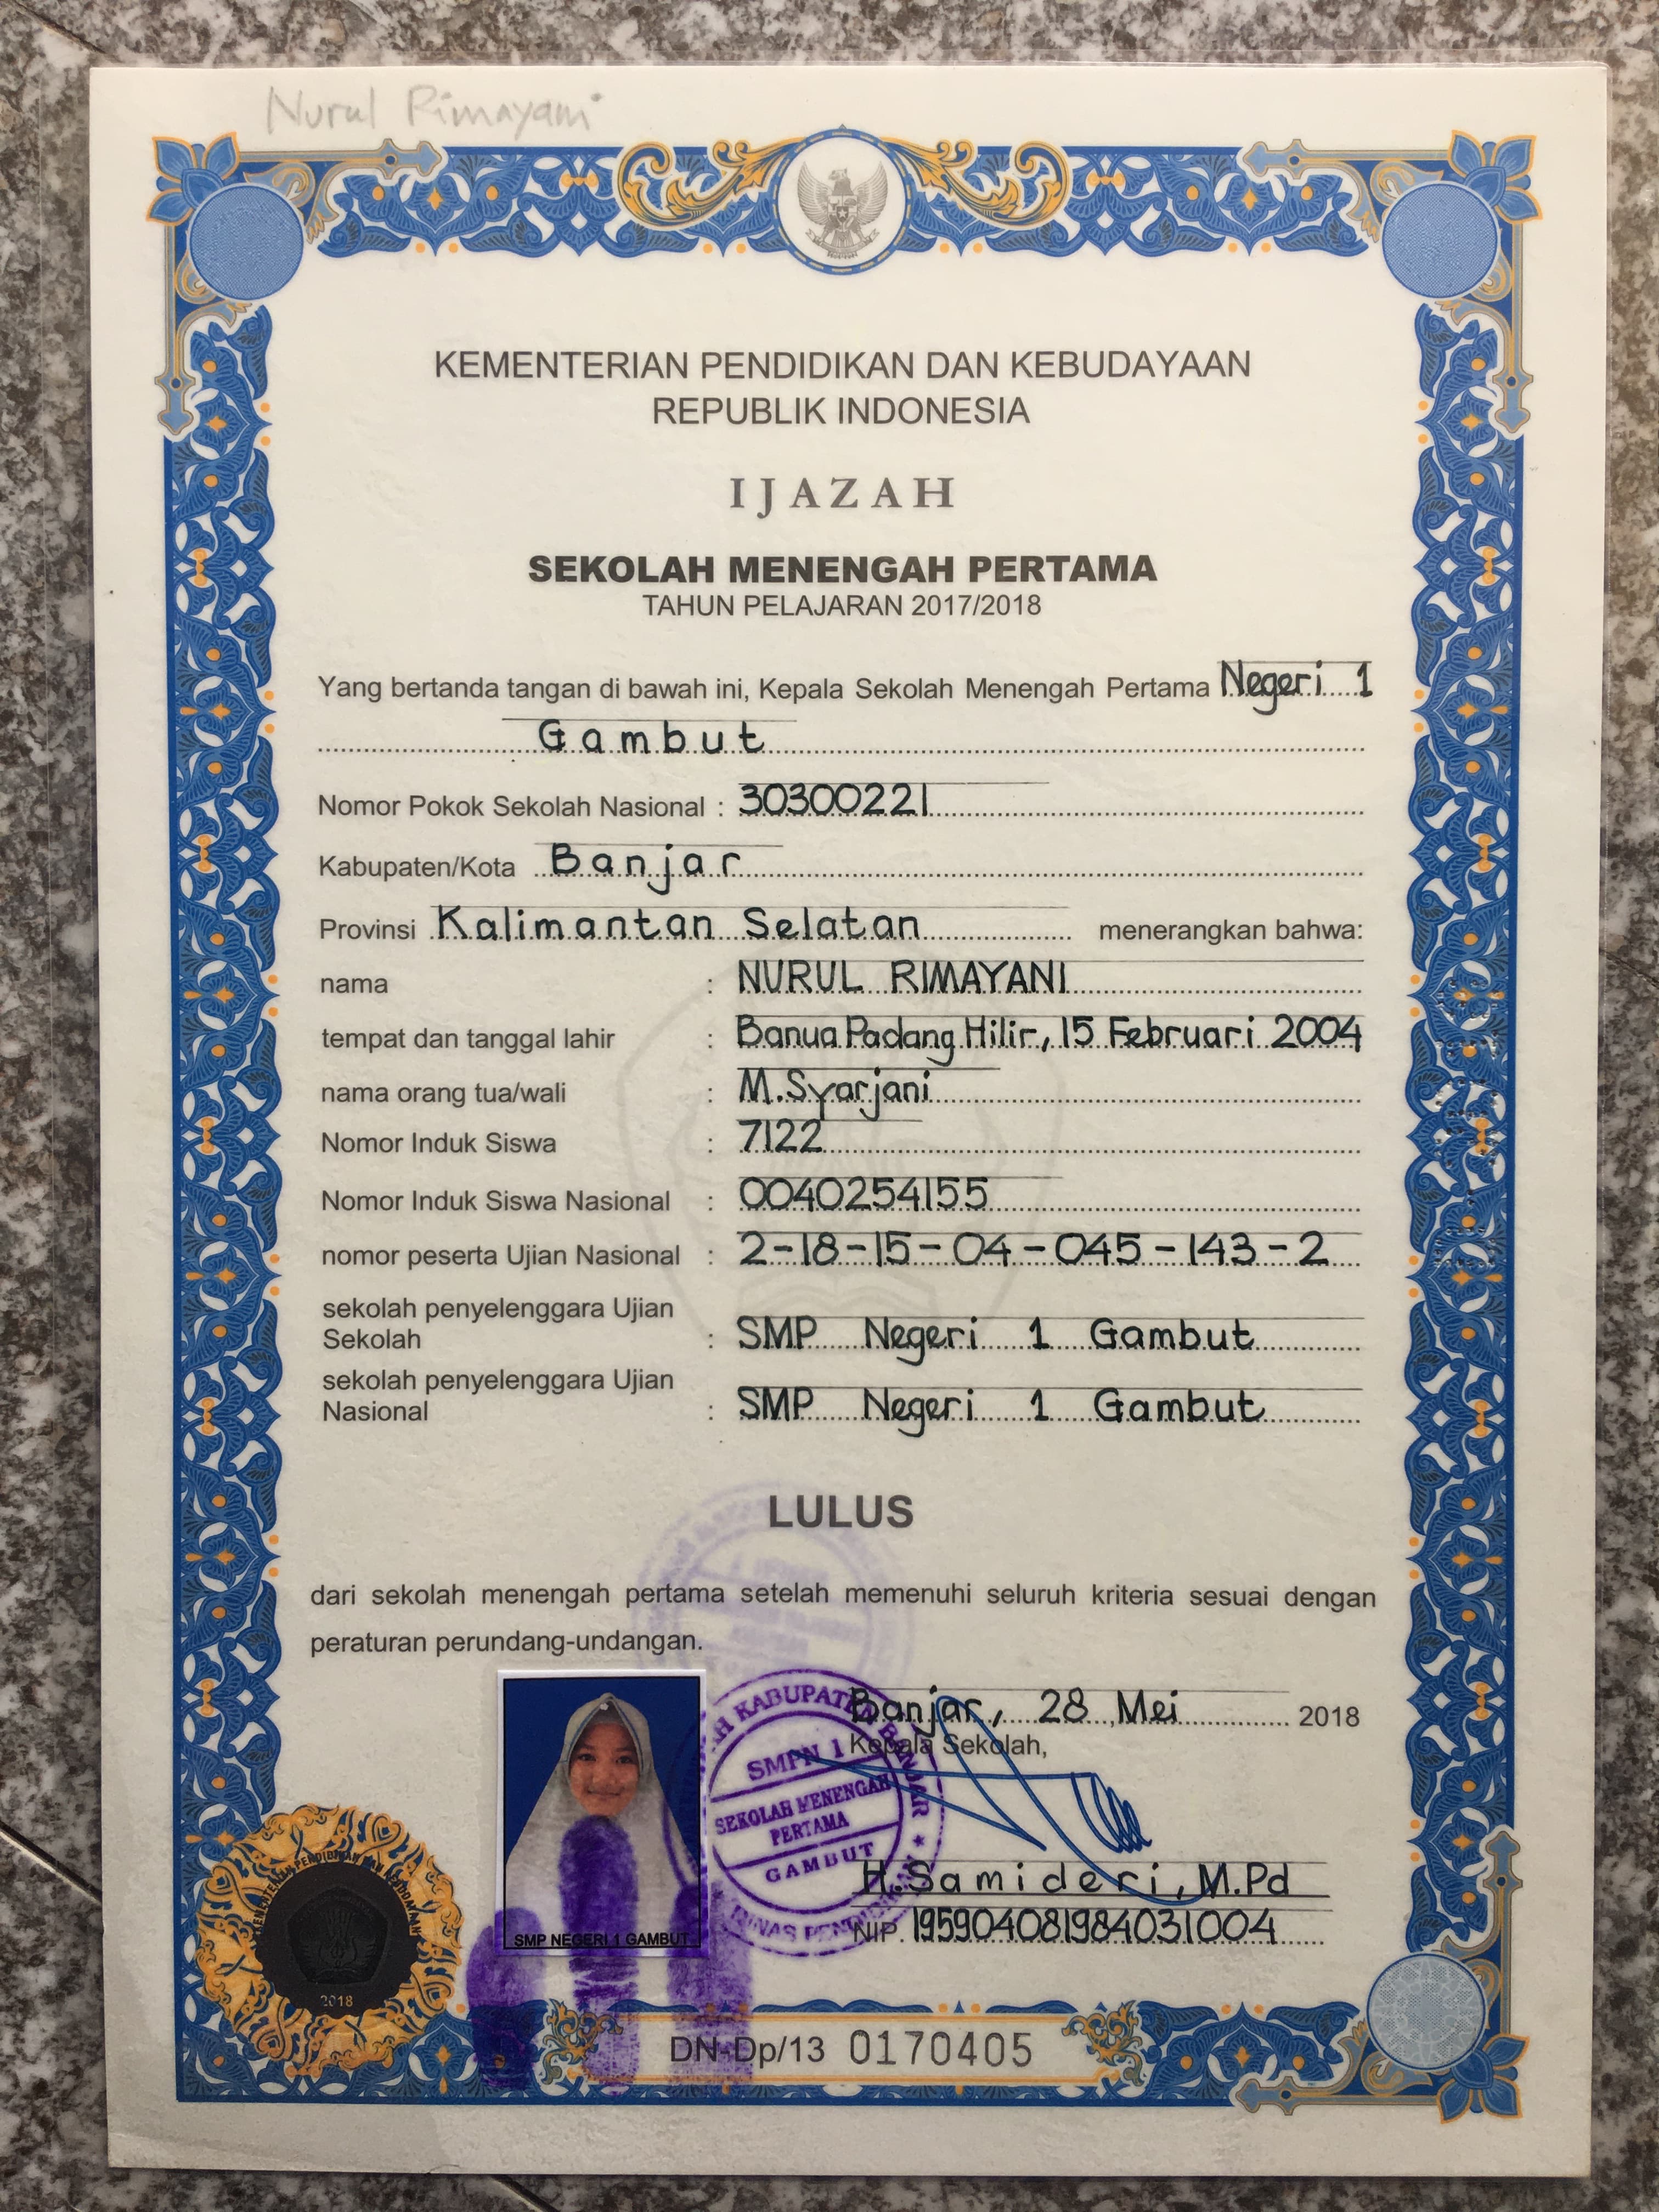 Nurul Rimayani
KEMENTERIAN PENDIDIKAN DAN KEBUDAYAAN
REPUBLIK INDONESIA
IJAZAH
SEKOLAH MENENGAH PERTAMA
TAHUN PELAJARAN 2017/2018
Yang bertanda tangan di bawah ini, Kepala Sekolah Menengah Pertama Negeri 1
Gambut
Nomor Pokok Sekolah Nasional : 30300221
Kabupaten/Kota Banjar
Provinsi Kalimantan Selatan menerangkan bahwa:
nama : NURUL RIMAYANI
tempat dan tanggal lahir : Banua Padang Hilir, 15 Februari 2004
nama orang tua/wali : M.Syarjani
Nomor Induk Siswa : 7122
Nomor Induk Siswa Nasional : 0040254155
nomor peserta Ujian Nasional : 2-18-15-04-045-143-2
sekolah penyelenggara Ujian
Sekolah : SMP Negeri 1 Gambut
sekolah penyelenggara Ujian
Nasional : SMP Negeri 1 Gambut
LULUS
dari sekolah menengah pertama setelah memenuhi seluruh kriteria sesuai dengan
peraturan perundang-undangan.
Banjar, 28 Mei 2018
Kepala Sekolah,
SMPN 1
SEKOLAH MENENGAH
PERTAMA
GAMBUT
H.Samideri, M.Pd
NIP. 195904081984031004
SMP NEGERI 1 GAMBUT
KEMENTERIAN PENDIDIKAN DAN KEBUDAYAAN
2018
DN-Dp/13 0170405